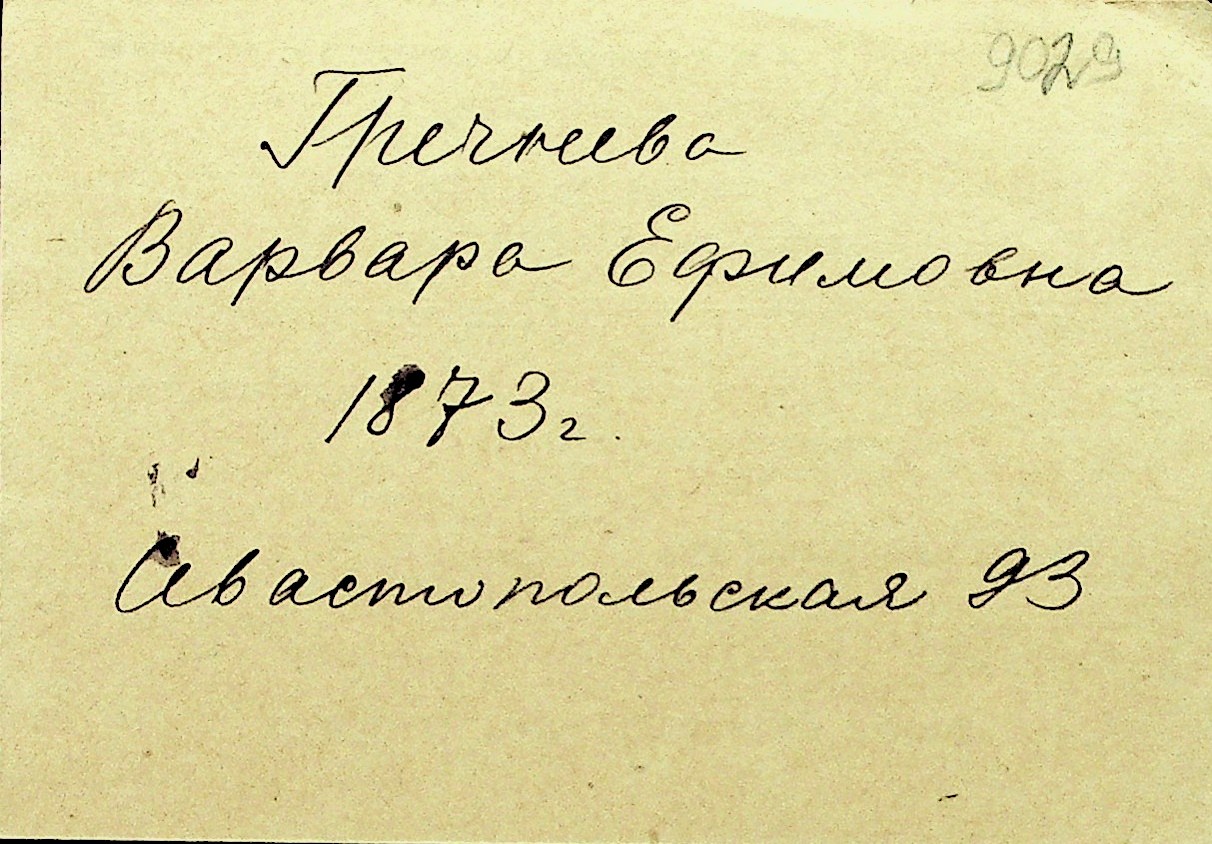 9029
Гречнева
Варвара Ефимовна
1873 г.
Севастопольская 93